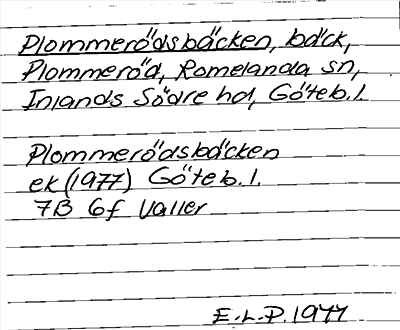 Plommerödsbäcken, bäck,
Plommeröd, Romelanda sn,
Inlands Södre hd, Göteb.l.
Plommerödsbäcken
ek (1977) Göteb.l.
7B 6f Valler
E.L.P. 1977